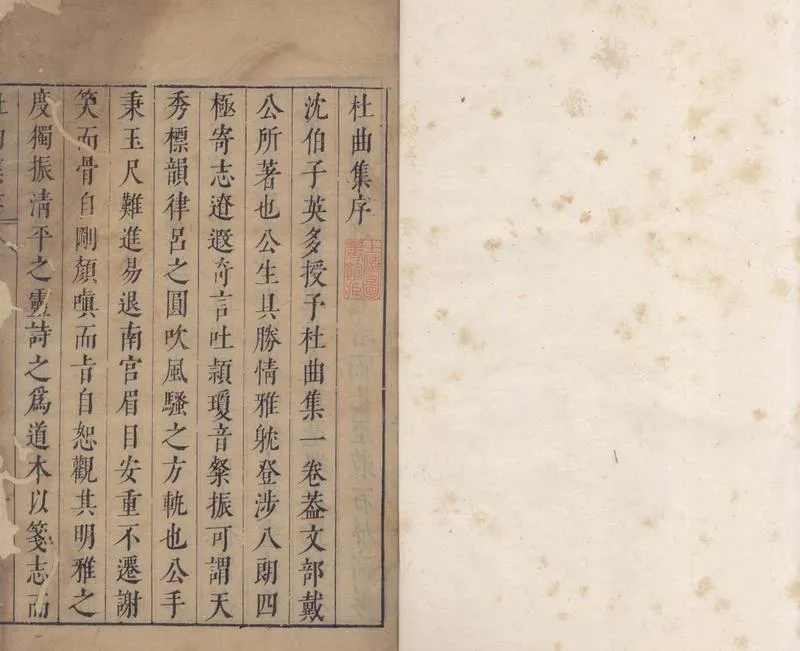 杜曲集序
沈伯子英多授予杜曲集一卷葢文部戴
公所著也公生具勝情雅躭登涉八朗四
極寄志遼遐奇言吐頴瓊音粲振可謂天
秀標韻律呂之圓吹風騷之方軌也公手
秉玉尺難進易退南宫眉目安重不遷謝
笑而骨自剛顏嗔而旨自恕觀其明雅之
度獨振淸平之靈詩之爲道木以箋志而